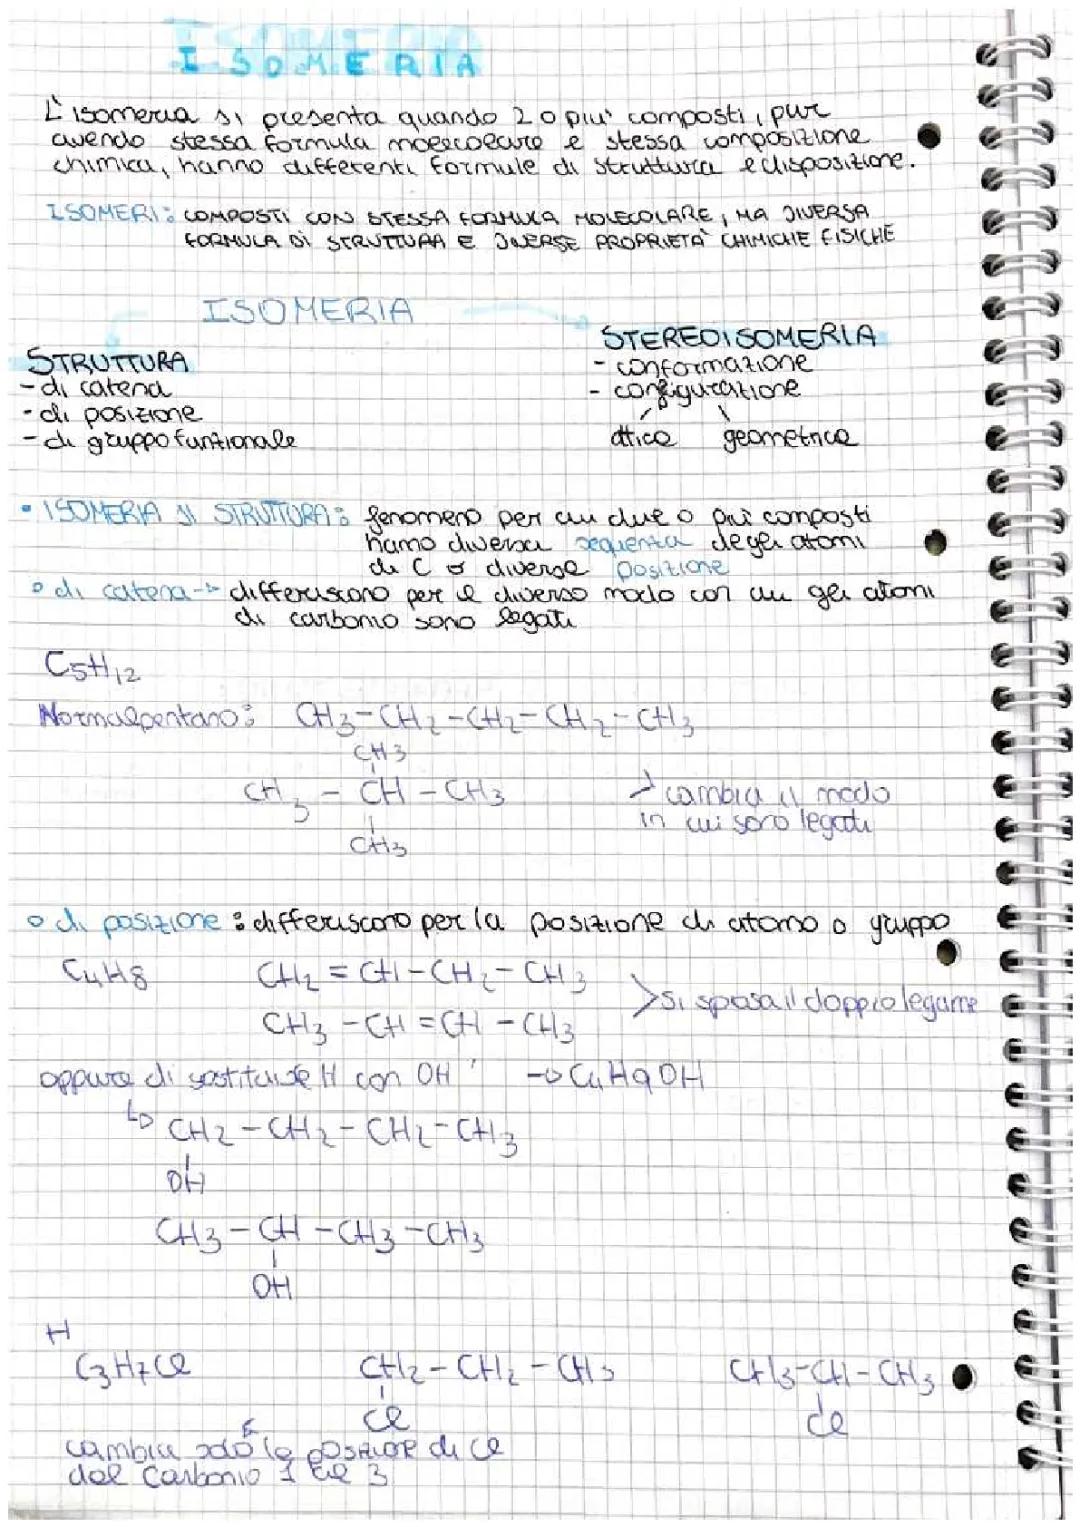 ISOMERIA
L'isomeria si presenta quando 2 o piu' composti, pur
avendo stessa formula molecolare e stessa composizione
chimica, hanno differenti formule di struttura e disposizione.
ISOMERI: COMPOSTI CON STESSA FORMULA MOLECOLARE, MA DIVERSA
FORMULA DI STRUTTURA E DIVERSE PROPRIETÀ CHIMICHE FISICHE
ISOMERIA
STRUTTURA
- di catena
- di posizione
- di gruppo funzionale
STEREOISOMERIA
- conformazione
- configurazione
ottica geometrica
• ISOMERIA DI STRUTTURA: fenomeno per cui due o più composti
hanno diversa sequenza degli atomi
di C o diverse posizione
o di catena → differiscono per il diverso modo con cui gli atomi
di carbonio sono legati
C5H12
Normalpentano: CH3-CH2-CH2-CH2-CH3
CH3
CH3 - CH - CH3
CH3
> cambia il modo
in cui sono legati
o di posizione: differiscono per la posizione di atomo o gruppo
C4H8 CH2 = CH-CH2-CH3
CH3 - CH = CH - CH3
> si sposa il doppio legame
oppure di sostituisce H con OH → C4H9OH
↳ CH2-CH2-CH2-CH3
OH
CH3-CH-CH3-CH3
OH
H
C3H7Cl CH2-CH2-CH3 CH3-CH-CH3
Cl Cl
cambia solo la posizione di Cl
dal carbonio 1 al 3